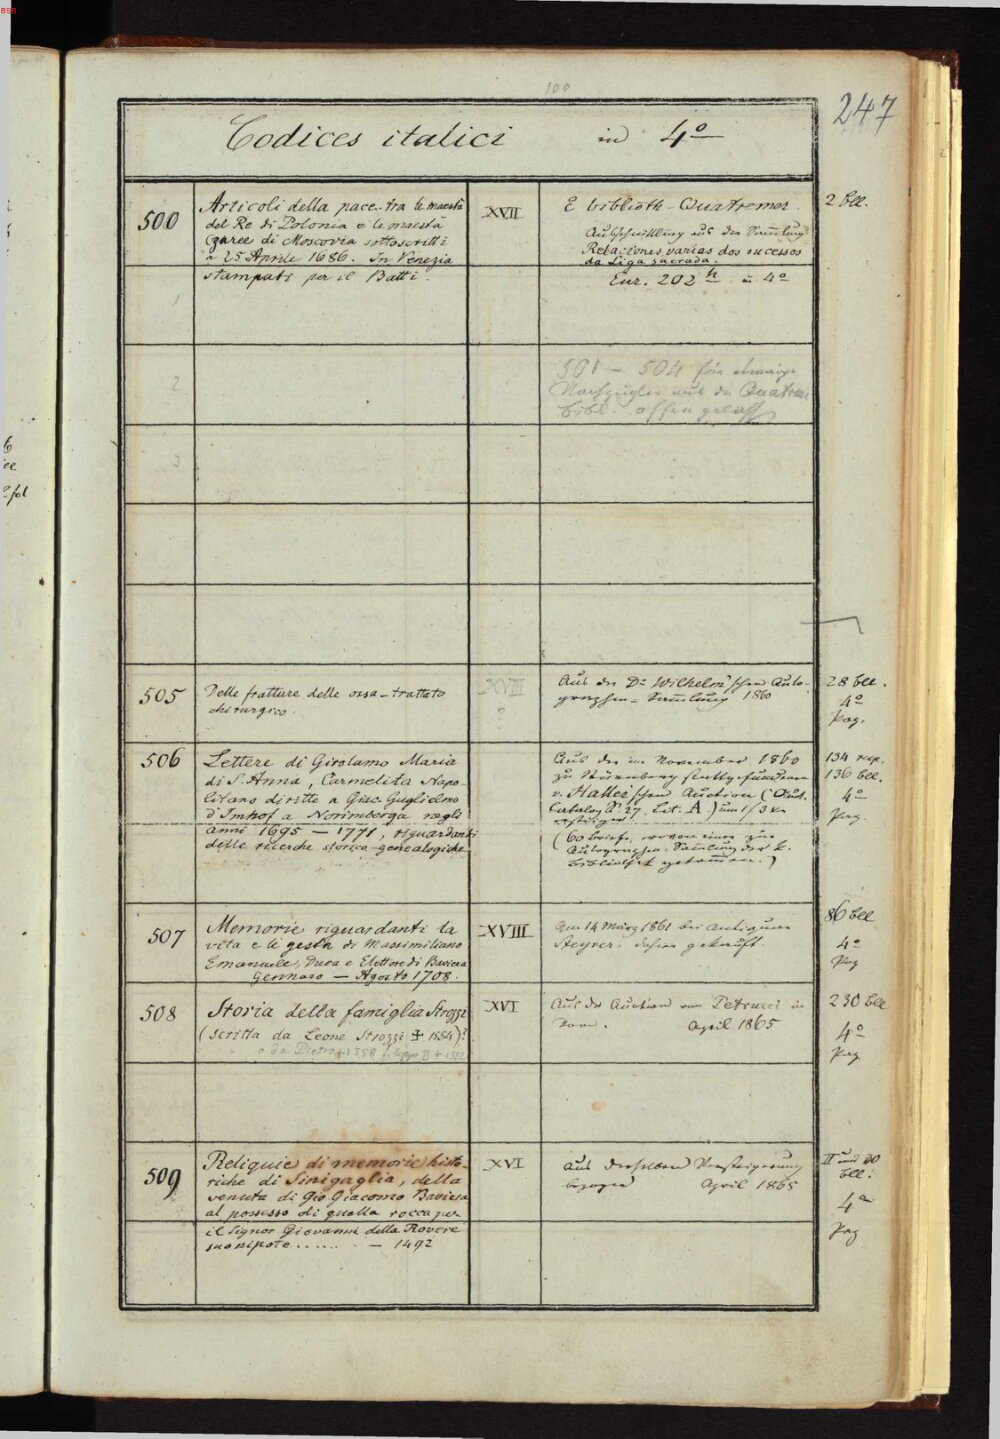 BSB
100
247
Codices italici in 4º
500
Articoli della pace tra le maestà
del Re di Polonia e le maestà
Czaree di Moscovia sottoscritti
à 25 Aprile 1686. In Venezia
stampati per il Batti.
XVII
E biblioth. Quatremer.
aus der Sammlung
Relaciones varias dos sucessos
da Liga sacrada.
Eur. 202 h in 4º
2 bll.
1
2
501 – 504 für etwaige
Nachzügler aus der Quatrem
bibl. offen gelass
3
505
Delle fratture delle ossa – trattato
chirurgico.
XVIII
?
Aus der Dr Wilhelm'schen Auto-
graphen-Sammlung 1860
28 bll.
4º
Pag.
506
Lettere di Girolamo Maria
di S. Anna, Carmelita Napo-
litano diritte a Giac. Guglielmo
d'Imhof a Norimberga negli
anni 1695 – 1771, riguardanti
delle ricerche storico-genealogiche.
Aus der im November 1860
zu Nürnberg stattgefundenen
v. Haller'schen Auction (Auct.
Catalog N. 27. Lit. A) um 1/3 kr
ersteigert
(60 Briefe, wovon einer zur
Autographen-Samlung der k.
Bibliothek gekommen.)
134 resp.
136 bll.
4º
Pag.
507
Memorie riguardanti la
vita e le gesta di Massimiliano
Emanuele, Duca e Elettore di Baviera
Gennaro – Agosto 1708.
XVIII
Am 14 März 1861 bei Antiquar
Steyrer dahier gekauft.
86 bll
4º
Pag
508
Storia della famiglia Strozzi
(scritta da Leone Strozzi ‡ 1554)?
o da Pietro + 1558 Filippo II + 1582
XVI
Aus der Auction von Petrucci in
Rom. April 1865
230 bll
4º
Pag
509
Reliquie di memorie histo-
riche di Sinigaglia, della
venuta di Gio Giacomo Baviera
al possesso di quella rocca per
il Signor Giovanni della Rovere
suo nipote ...... – 1492
XVI
Aus derselben Versteigerung
bezogen April 1865
II und 20
bll.
4º
Pag